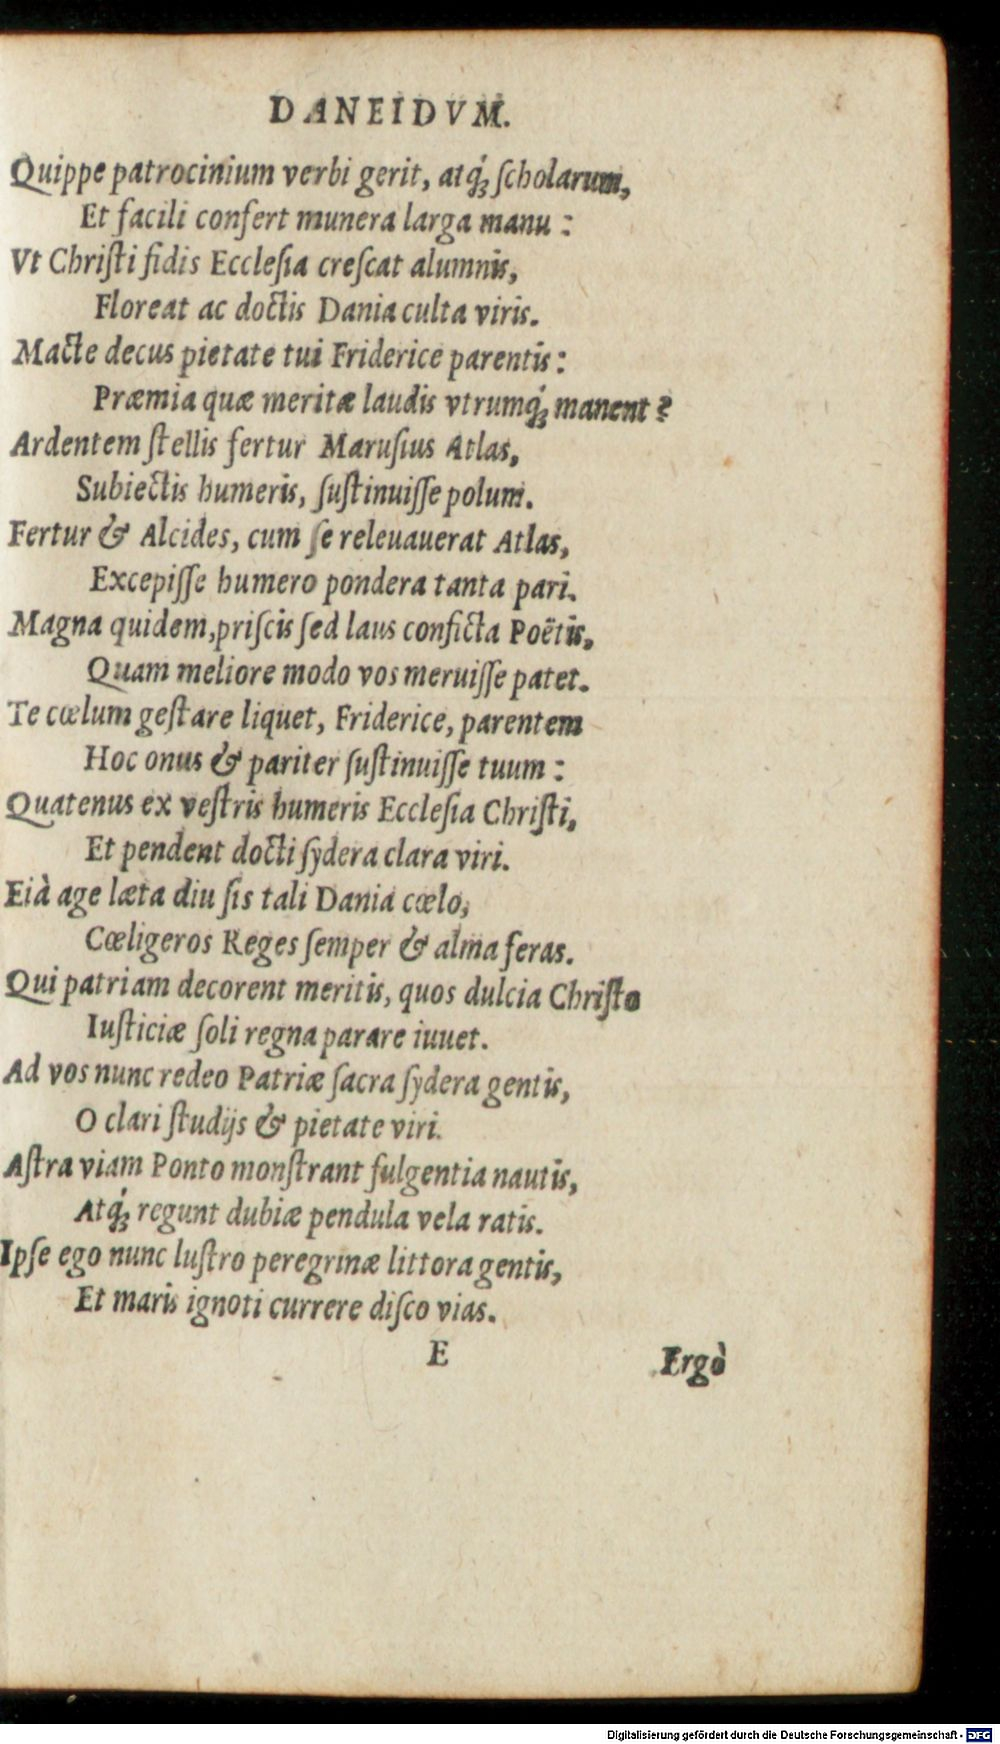 DANEIDVM.
Quippe patrocinium verbi gerit, atq́ꝫ ſcholarum,
Et facili confert munera larga manu :
Vt Chriſti fidis Eccleſia creſcat alumnis,
Floreat ac doctis Dania culta viris.
Macte decus pietate tui Friderice parentis :
Præmia quæ meritæ laudis vtrumq́ꝫ manent ?
Ardentem ſtellis fertur Maruſius Atlas,
Subiectis humeris, ſuſtinuiſſe polum.
Fertur & Alcides, cum ſe releuauerat Atlas,
Excepiſſe humero pondera tanta pari.
Magna quidem, priſcis ſed laus conficta Poëtis,
Quam meliore modo vos meruiſſe patet.
Te cœlum geſtare liquet, Friderice, parentem
Hoc onus & pariter ſuſtinuiſſe tuum :
Quatenus ex veſtris humeris Eccleſia Chriſti,
Et pendent docti ſydera clara viri.
Eià age læta diu ſis tali Dania cœlo,
Cœligeros Reges ſemper & alma feras.
Qui patriam decorent meritis, quos dulcia Chriſto
Iuſticiæ ſoli regna parare iuuet.
Ad vos nunc redeo Patriæ ſacra ſydera gentis,
O clari ſtudijs & pietate viri.
Aſtra viam Ponto monſtrant fulgentia nautis,
Atq́ꝫ regunt dubiæ pendula vela ratis.
Ipſe ego nunc luſtro peregrinæ littora gentis,
Et maris ignoti currere diſco vias.
E
Ergò
Digitalisierung gefördert durch die Deutsche Forschungsgemeinschaft - DFG